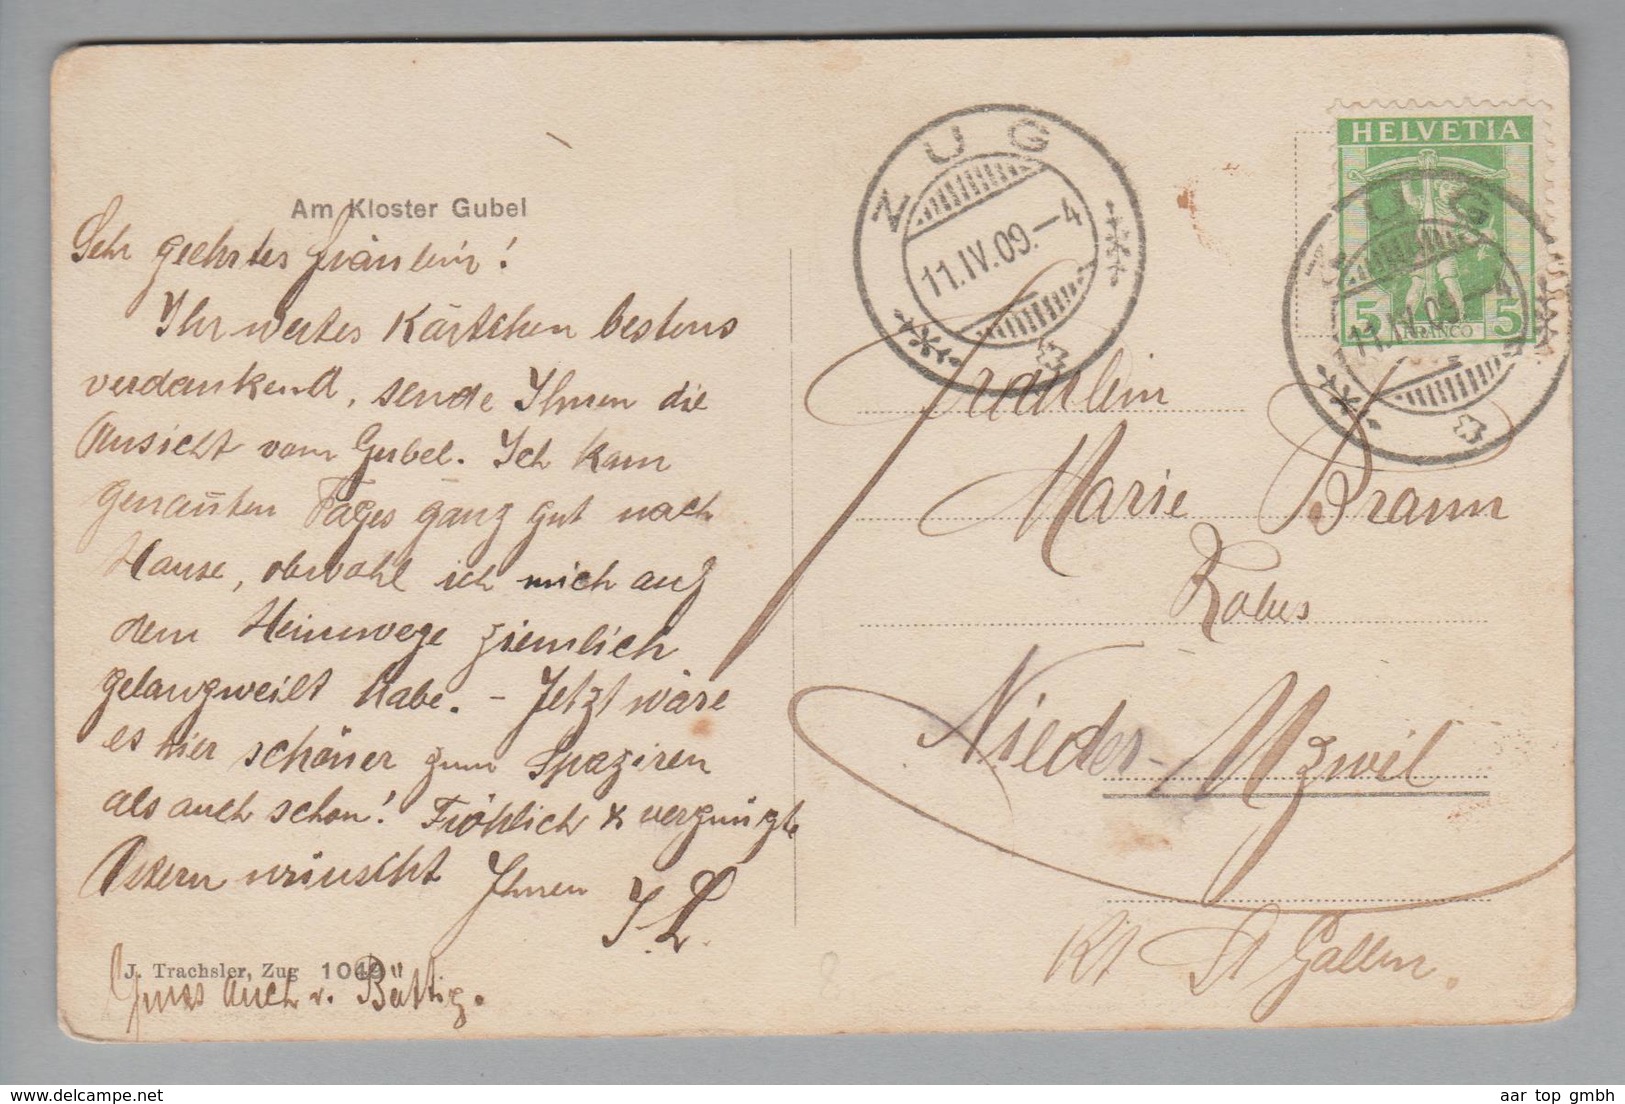 Am Kloster Gubel
Sehr geehrtes Fräulein!
Ihr wertes Kärtchen bestens
verdankend, sende Ihnen die
Ansicht vom Gubel. Ich kam
genannten Tages ganz gut nach
Hause, obwohl ich mich auf
dem Heimwege ziemlich
gelangweilt habe. - Jetzt wäre
es hier schöner zum Spaziren
als auch schon! Fröhlich & vergnügte
Ostern wünscht Ihnen J. L.
J. Trachsler, Zug 1049
Gruss Auch v. Bättig.
ZUG
11.IV.09.-4
HELVETIA
5 FRANCO 5
ZUG
11.IV.09.-4
Fräulein
Marie Braun
Nieder-Uzwil
Kt St Gallen.
aar top gmbh